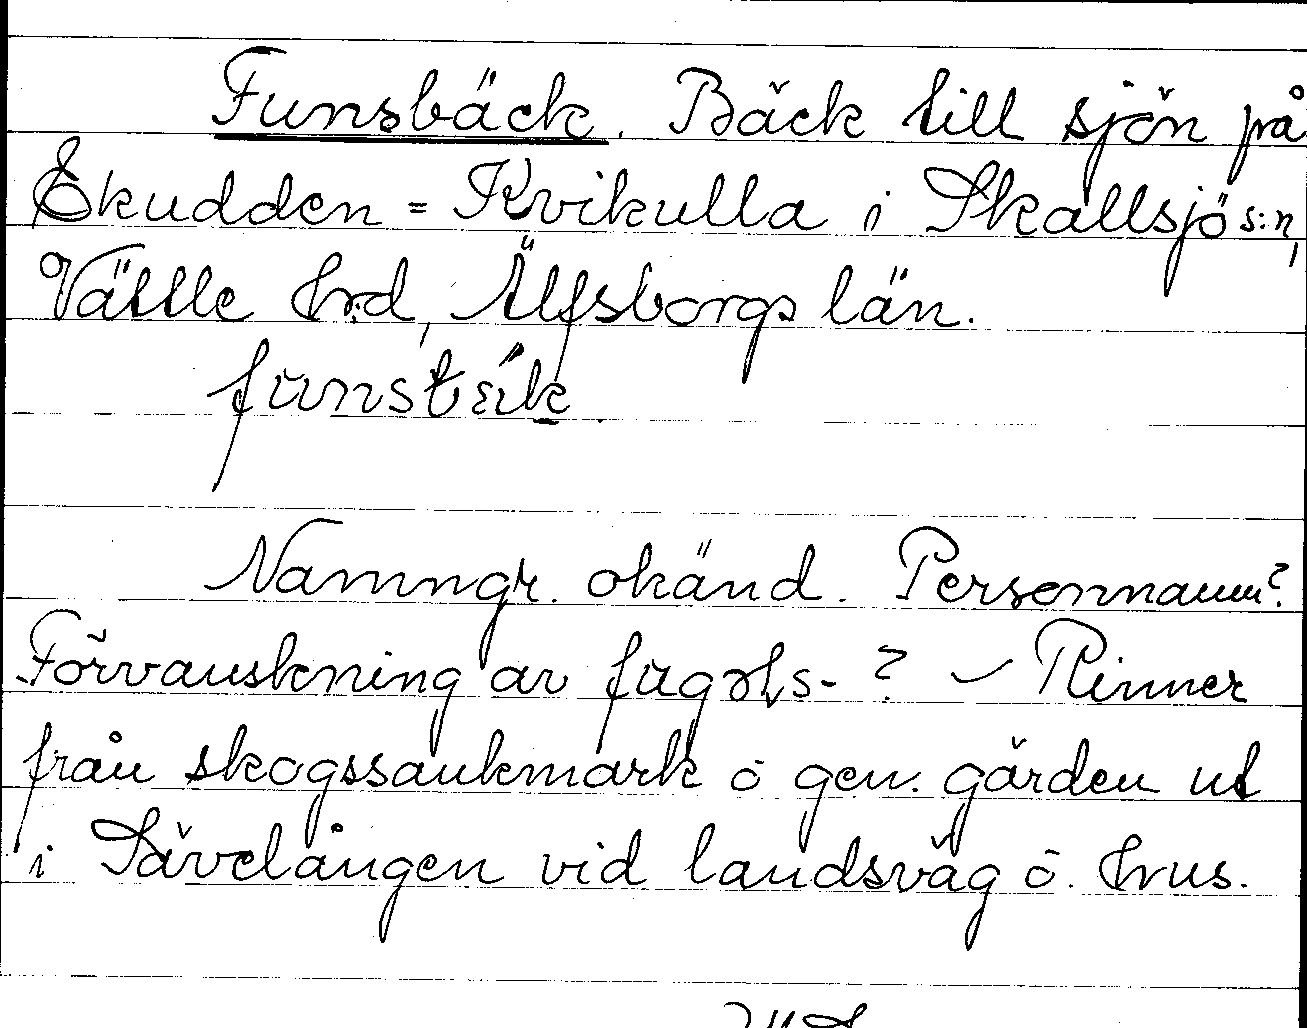 Funsbäck. Bäck till sjön på
Ekudden = Kvikulla i Skallsjö s:n,
Vättle hrd, Älfsborgs län.
Namngr. okänd. Personnamn?
Förvanskning av fugols- ? – Rinner
från skogssankmark ö gen. gärden ut
i Sävelången vid landsväg ö. hus.